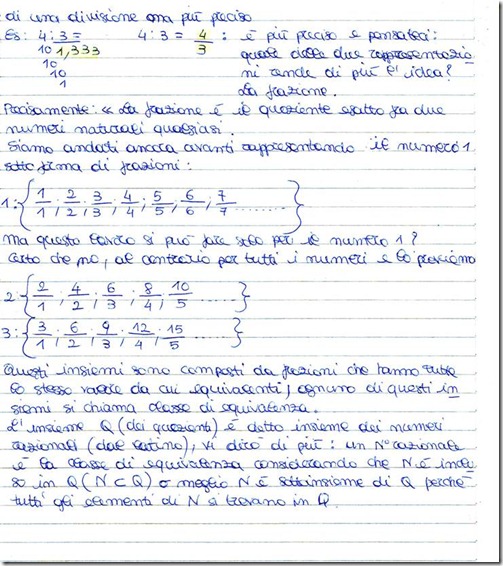 di una divisione ma più preciso
Es: 4:3=    4:3 = 4/3 : è più preciso e pensateci:
10 1,333    quale delle due rappresentazio
10    ni rende di più l'idea?
10    La frazione.
1
Precisamente: « La frazione è il quoziente esatto fra due
numeri naturali qualsiasi.
Siamo andati ancora avanti rappresentando il numero 1
sotto forma di frazioni:
1:{1/1; 2/2; 3/3; 4/4; 5/5; 6/6; 7/7 ........}
Ma questo lavoro si può fare solo per il numero 1?
Certo che no, al contrario per tutti i numeri e lo proviamo
2:{2/1; 4/2; 6/3; 8/4; 10/5 ......}
3:{3/1; 6/2; 9/3; 12/4; 15/5 ......}
Questi insiemi sono composti da frazioni che hanno tutte
lo stesso valore da cui equivalenti, ognuno di questi in
siemi si chiama classe di equivalenza.
L'insieme Q (dei quozienti) è detto insieme dei numeri
razionali (dal latino), vi dirò di più: un N° razionale
è la classe di equivalenza considerando che N è inclu
so in Q (N ⊂ Q) o meglio N è sottoinsieme di Q perchè
tutti gli elementi di N si trovano in Q.